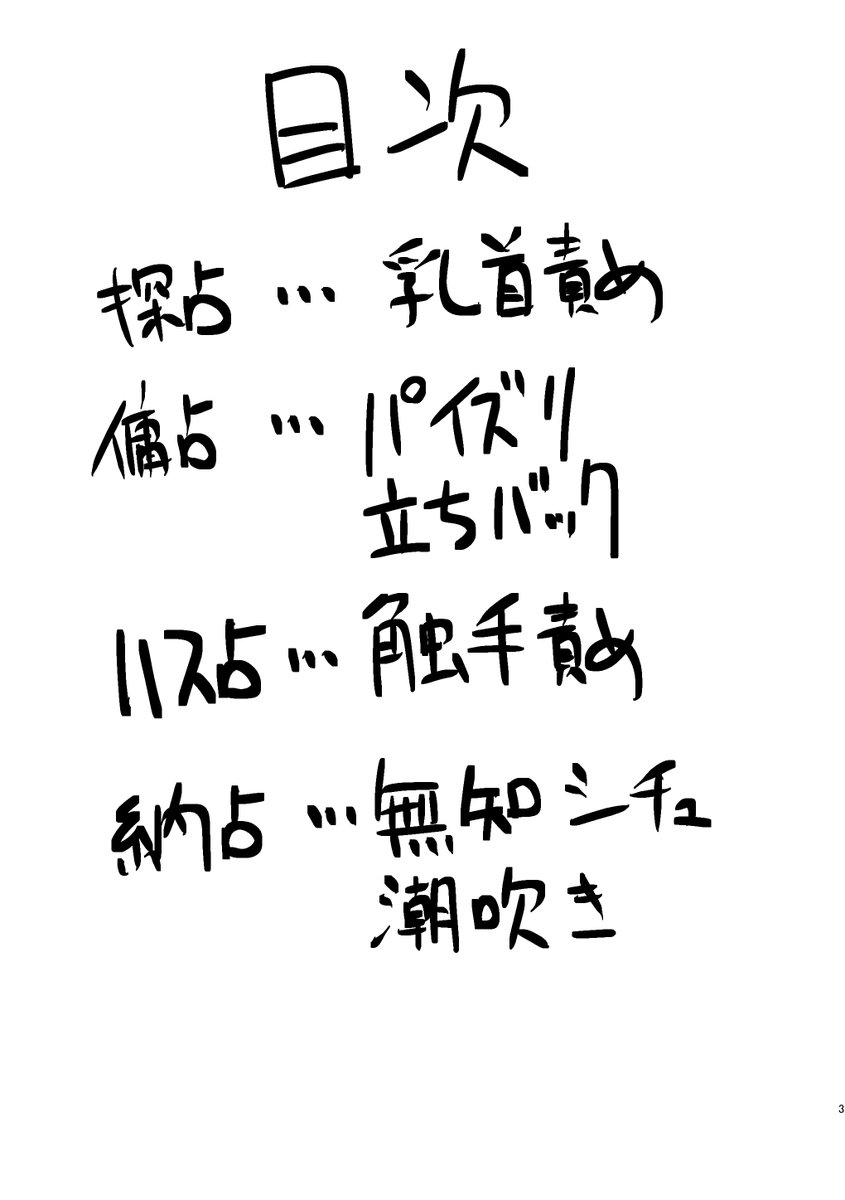 目次
探占…乳首責め
傭占…パイズリ
立ちバック
ハス占…触手責め
納占…無知シチュ
潮吹き
3